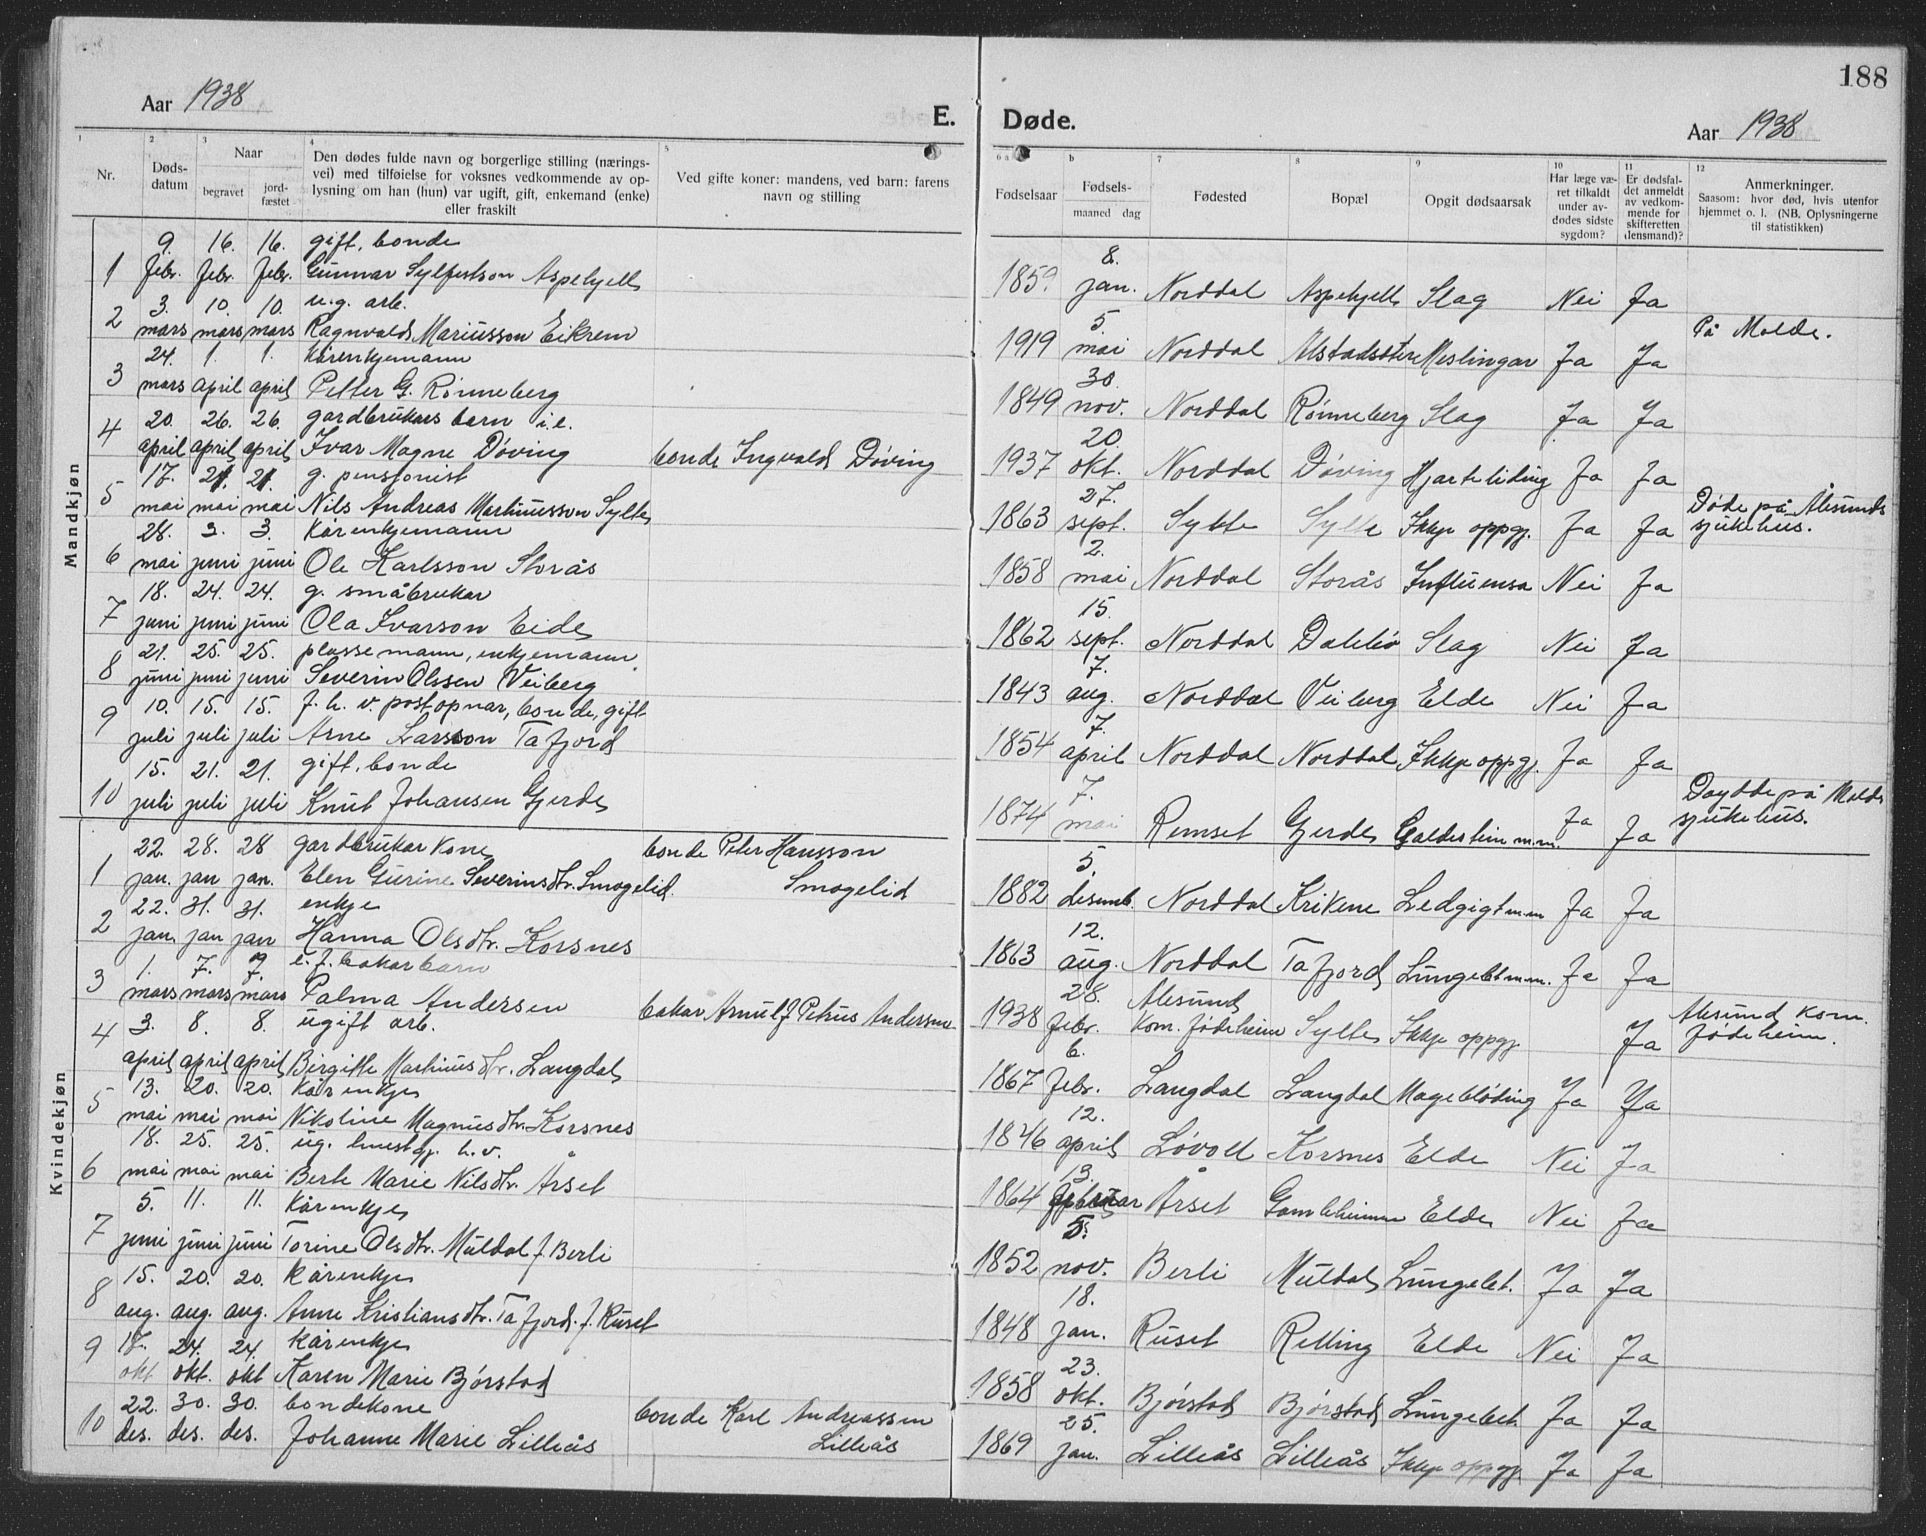 188
Aar 1938
E. Døde.
Aar 1938
1 2 3 4 5 6 a b 7 8 9 10 11 12
Nr.
Døds-
datum
Naar
begravet
jord-
fæstet
Den dødes fulde navn og borgerlige stilling (nærings-
vei) med tilføielse for voksnes vedkommende av op-
lysning om han (hun) var ugift, gift, enkemand (enke)
eller fraskilt
Ved gifte koner: mandens, ved barn: farens
navn og stilling
Fødselsaar
Fødsels-
maaned dag
Fødested
Bopæl
Opgit dødsaarsak
Har læge væ-
ret tilkaldt
under av-
dødes sidste
sygdom?
Er dødsfal-
det anmeldt
av vedkom-
mende for
skifteretten
(lensmand)?
Anmerkninger.
Saasom: hvor død, hvis utenfor
hjemmet o. l. (NB. Oplysningerne
til statistikken)
Mandkjøn
9. 16. 16. gift, bonde 8.
1 febr. febr. febr. Gunnar Sylfestson Aspehjell 1859 jan. Norddal Aspehjell Slag Nei Ja
3. 10. 10. u.g. arb. 5. På Molde.
2 mars mars mars Ragnvald Mariusson Eikrem 1919 mai Norddal Meslingar Ja Ja
24. 1. 1. Kårenkjemann 30.
3 mars april april Petter G. Rønneberg 1849 nov. Norddal Rønneberg Slag Ja Ja
20. 26. 26. gardbrukars barn i.e. 20.
4 april april april Ivar Magne Døving bonde Ingvald Døving 1937 okt. Norddal Døving Hjarteliding Ja Ja
17. 21. 21. g. pensjonist 27. Døde på Ålesunds
5 mai mai mai Nils Andreas Martinusson Sylte 1863 sept. Sylte Sylte Ikkje oppgj. Ja Ja sjukehus.
28. 3. 3. Kårenkjemann 2.
6 mai juni juni Ole Karlsson Storås 1858 mai Norddal Storås Influensa Nei Ja
18. 24. 24. g. småbrukar 15.
7 juni juni juni Ola Ivarson Eide 1862 sept. Norddal Dalebø Slag Nei Ja
21. 25. 25. plassemann, enkjemann. 7.
8 juni juni juni Severin Olssen Veiberg 1843 aug. Norddal Veiberg Elde Nei Ja
10. 15. 15. f. h. v. postopnar, bonde, gift 7.
9 juli juli juli Arne Larsson Tafjord 1854 april Norddal Norddal Ikkje oppgj. Ja Ja
15. 21. 21. gift, bonde 7. Døydde på Molde
10 juli juli juli Knut Johansen Gjerde 1874 mai Remset Gjerde Galdestein m.m. Ja Ja sjukehus.
Kvindekjøn
22. 28. 28 gardbrukar kone bonde Peter Hansson 5.
1 jan. jan jan. Elen Gurine Severinsdtr. Smogelid. Smogelid 1882 desemb. Norddal Krikene Ledgigt m.m Ja Ja
22. 31. 31. enkje 12.
2 jan. jan jan Hanna Olsdtr. Korsnes 1863 aug. Norddal Tafjord Lungebet m.m. Ja Ja
1. 7. 7. e. f. bakarbarn 28. Ålesund Ålesund kom.
3 mars mars mars Palma Andersen bakar Arnulf Petrus Andersen 1938 febr. kom. fødeheim Sylte Ikkje oppgj. Ja fødeheim.
3. 8. 8. ugift arb. 6.
4 april april april Birgitte Martinusdtr. Langdal 1867 febr. Langdal Langdal Magebløding Ja Ja
13. 20. 20. Kårenkje 12.
5 mai mai mai Nikoline Magnusdtr. Korsnes 1846 april Løvoll Korsnes Elde Nei Ja
18. 25. 25. ug. h.v. 13.
6 mai mai mai Berte Marie Nilsdtr. Årset 1864 februar Årset Gamleheimen Elde Nei Ja
5. 11. 11. Kårenkje 5.
7 juni juni juni Torine Olsdtr. Muldal f. Berli 1852 nov. Berli Muldal Lungebet. Ja Ja
15. 20. 20. Kårenkje 18.
8 aug. aug. aug. Anne Kristiansdtr. Tafjord. f. Ruset 1848 jan. Ruset Relling Elde Nei Ja
17. 24. 24. Kårenkje 23.
9 okt okt. okt Karen Marie Bjørstad 1858 okt. Bjørstad Bjørstad Lungebet. Ja Ja
22. 30. 30. bondekone bonde Karl Andreassen 25.
10 des. des. des. Johanne Marie Lilleås Lilleås 1869 jan. Lilleås Lilleås Ikkje oppgj. Ja Ja